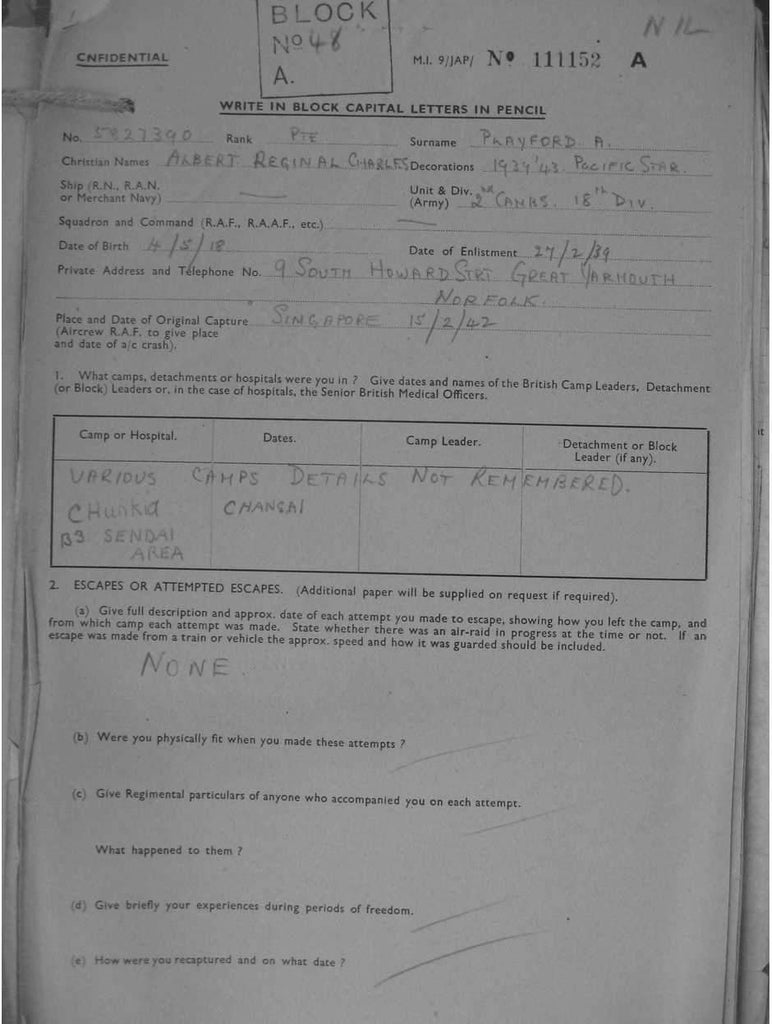 BLOCK
Nº 48
A.
NIL
CNFIDENTIAL
M.I. 9/JAP/ Nº 111152 A
WRITE IN BLOCK CAPITAL LETTERS IN PENCIL
No. 5827390 Rank PTE Surname PLAYFORD A.
Christian Names ALBERT REGINAL CHARLES Decorations 1939'43. PACIFIC STAR.
Ship (R.N., R.A.N. or Merchant Navy) — Unit & Div. (Army) 2nd CAMBS. 18TH DIV.
Squadron and Command (R.A.F., R.A.A.F., etc.) —
Date of Birth 4/5/18 Date of Enlistment 27/2/39
Private Address and Telephone No. 9 SOUTH HOWARD STRT GREAT YARMOUTH
NORFOLK.
Place and Date of Original Capture SINGAPORE 15/2/42
(Aircrew R.A.F. to give place
and date of a/c crash).
1. What camps, detachments or hospitals were you in ? Give dates and names of the British Camp Leaders, Detachment
(or Block) Leaders or, in the case of hospitals, the Senior British Medical Officers.
Camp or Hospital. Dates. Camp Leader. Detachment or Block
Leader (if any).
VARIOUS CAMPS DETAILS NOT REMEMBERED.
CHUNKIA CHANGAI
B3 SENDAI
AREA
2. ESCAPES OR ATTEMPTED ESCAPES. (Additional paper will be supplied on request if required).
(a) Give full description and approx. date of each attempt you made to escape, showing how you left the camp, and
from which camp each attempt was made. State whether there was an air-raid in progress at the time or not. If an
escape was made from a train or vehicle the approx. speed and how it was guarded should be included.
NONE.
(b) Were you physically fit when you made these attempts ?
(c) Give Regimental particulars of anyone who accompanied you on each attempt.
What happened to them ?
(d) Give briefly your experiences during periods of freedom.
(e) How were you recaptured and on what date ?
it